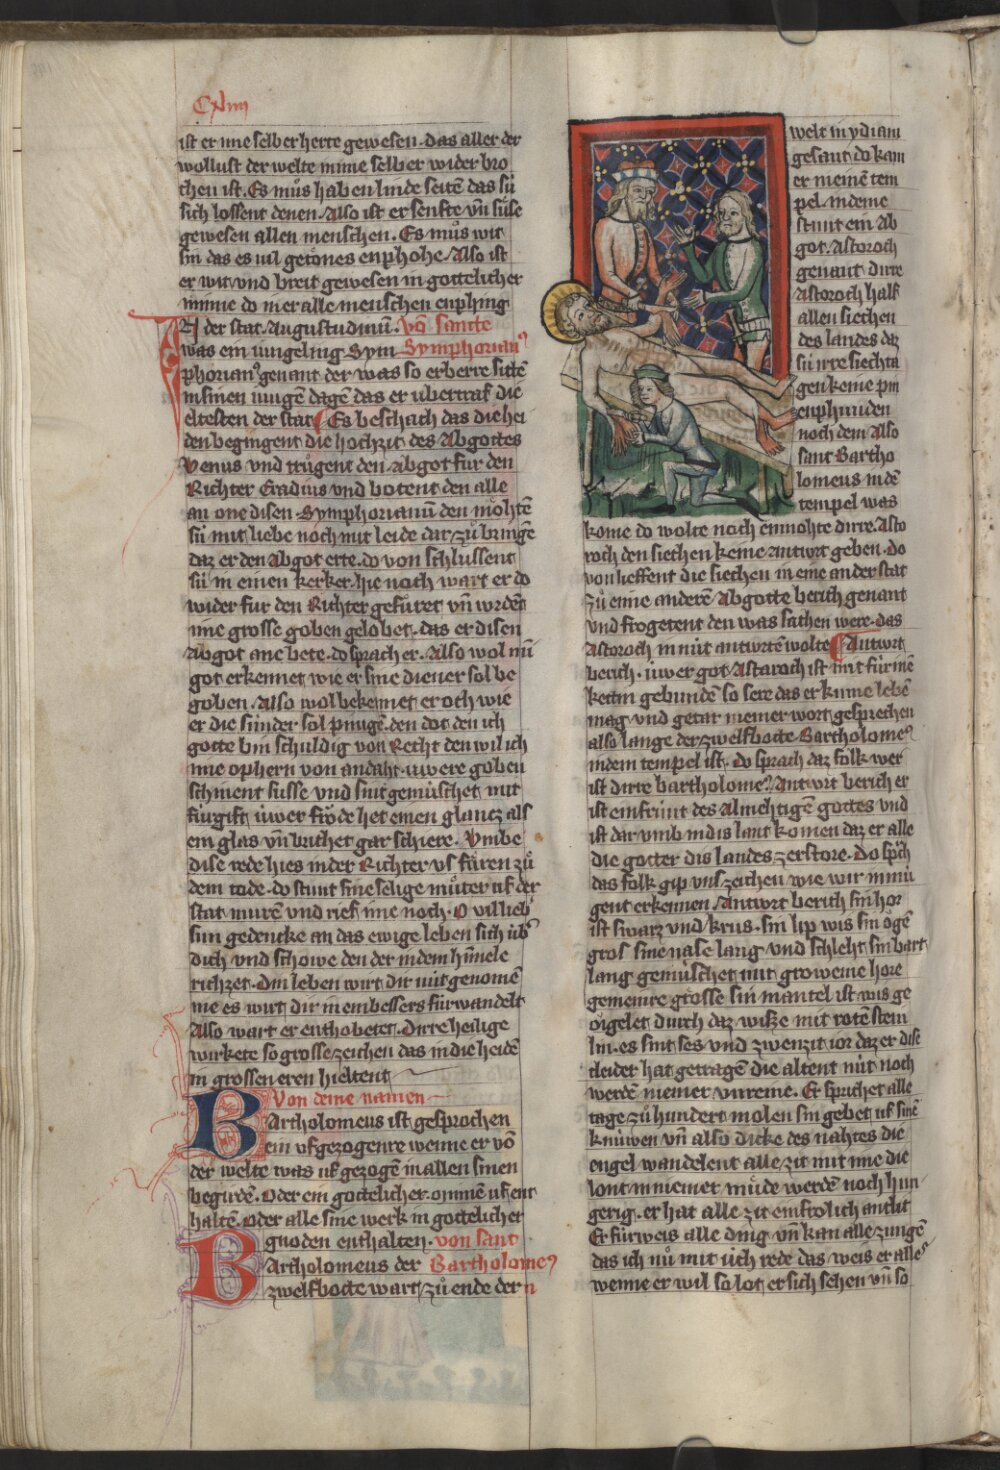 Cxliiii
ist er ime selber herte gewesen. das aller der
wollust der welte mime selber wider bro
chen ist. Es muͦs haben linde seitē das sú
sich lossent denen. Also ist er senfte vn̄ suͤse
gewesen allen menschen. Es muͦs wit
sin das es vil getoͤnes enpfohe. Also ist
er wit vnd breit gewesen in gottelicher
minne do in er alle menschen enphing
IN der stat. Augustudinū. võ sancte
was ein iungeling Sym Symphorian⁹
phorian⁹ genant der was so erberre sittē
in sinen iungē dagē das er vbertraf die
eltesten der stat Es beschach das die hei
den begingent die hochzit des Abgottes
Venus vnd truͦgent den. Abgot fur den
Richter Eradius vnd botent den alle
an one disen. Symphorianū den moͤhtē
sú mit liebe noch mit leide dar zuͦ bringē
daz er den Abgot erte. do von schlussent
sú in einen kerker. hie noch wart er do
wider fur den Richter gefuͤret vn̄ wrdēt
ime grosse goben gelobet. das er disen
abgot ane bete. do sprach er. Also wol nū
got erkennet wie er sine diener sol be
goben. Also wol bekennet er och wie
er die sunder sol pinigē. den dot den ich
gotte bin schuldig von Recht den wil ich
ime ophern von andaht. uwere goben
schinent susse vnd sint gemuschet mit
furgift úwer froͤde het einen glantz als
ein glas vn̄ brichet gar schiere. Vmbe
dise rede hies in der Richter vs fuͤren zuͦ
dem tode. do stunt sine selige muͦter uf der
stat muren vnd rief ime noch. O vil lieb'
sun gedencke an das ewige leben sich ub'
dich vnd schowe den der in dem himele
richzet. din leben wirt dir nut genomē
me es wirt dir in embessers fúrwandelt
Also wart er enthobetet. Dirre heilige
wirkete so grosse zeichen das in die heidē
in grossen eren hieltent
Von deme namen
BArtholomeus ist gesprochen
ein ufgezogenre wenne er võ
der welte was uf gezogē in allen sinen
begirdē. Oder ein gottelicher. ommē uf ent
haltē. Oder alle sine werk in gottelicher
gnoden enthalten. von sant
BArtholomeus der Bartholome⁹
zwelfbotte wart zuͦ ende der
welt in ydiam
gesant do kam
er in einē tem
pel. in deme
stunt ein ab
got. Astoroch
genant dirre
Astoroch half
allen siechen
des landes daz
sú irre siechta
gen keine pin
enphunden
noch dem Also
sant Bartho
lomeus in dē
tempel was
kome do wolte noch enmohte dirre. Asto
roch den siechen keine antwrt geben. do
von lieffent die siechen in eine ander stat
zuͦ eime anderē Abgotte berith genant
vnd frogetent den was sachen were. das
Astoroch in nút antwrtē wolte Antwrt
berith. úwer got Astaroch ist mit fúrinē
kettin gebundē so sere das er kume lebē
mag vnd getar niemer wort gesprechen
also lange der zwelfbotte Bartholome⁹
in dem tempel ist. do sprach daz folk wer
ist dirre bartholome⁹. Antwrt berich er
ist ein frúnt des Almechtigē gottes vnd
ist dar vmb in dis lant komen daz er alle
die gotter dis landes zerstore. Do sp̄ch
das folk gip vns zeichen wie wir in mú
gent erkennen. Antwrt berich sin hor
ist swarz vnd krus. sin lip wis sin oͤgē
gros sine nase lang vnd schleht sin bart
lang gemúschet mit groweme hore
gemeinre grosse sin mantel ist wis ge
oͤigelet durch daz wisze mit rotē stein
lin. es sint ses vnd zwenzit ior daz er dise
cleider hat getragē die altent nút noch
werdē niemer vnreine. Er sprichet alle
tage zuͦ hundert molen sin gebet uf sinē
knúwen vn̄ also dicke des nahtes die
engel wandelent alle zit mit ime die
lont in niemer muͤde werdē noch hun
gerig. er hat alle zit ein frolich antlit
Er fúrweis alle ding vn̄ kan alle zungē
das ich nuͦ mit úch rede das weis er alles
wenne er wil so lot er sich sehen vn̄ so